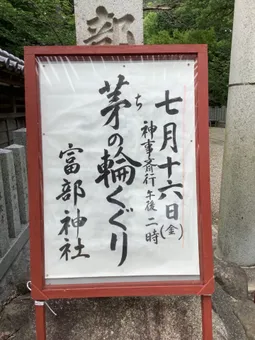 部
七月十六日(金)
神事斎行午後二時
ち
茅の輪くぐり
富部神社